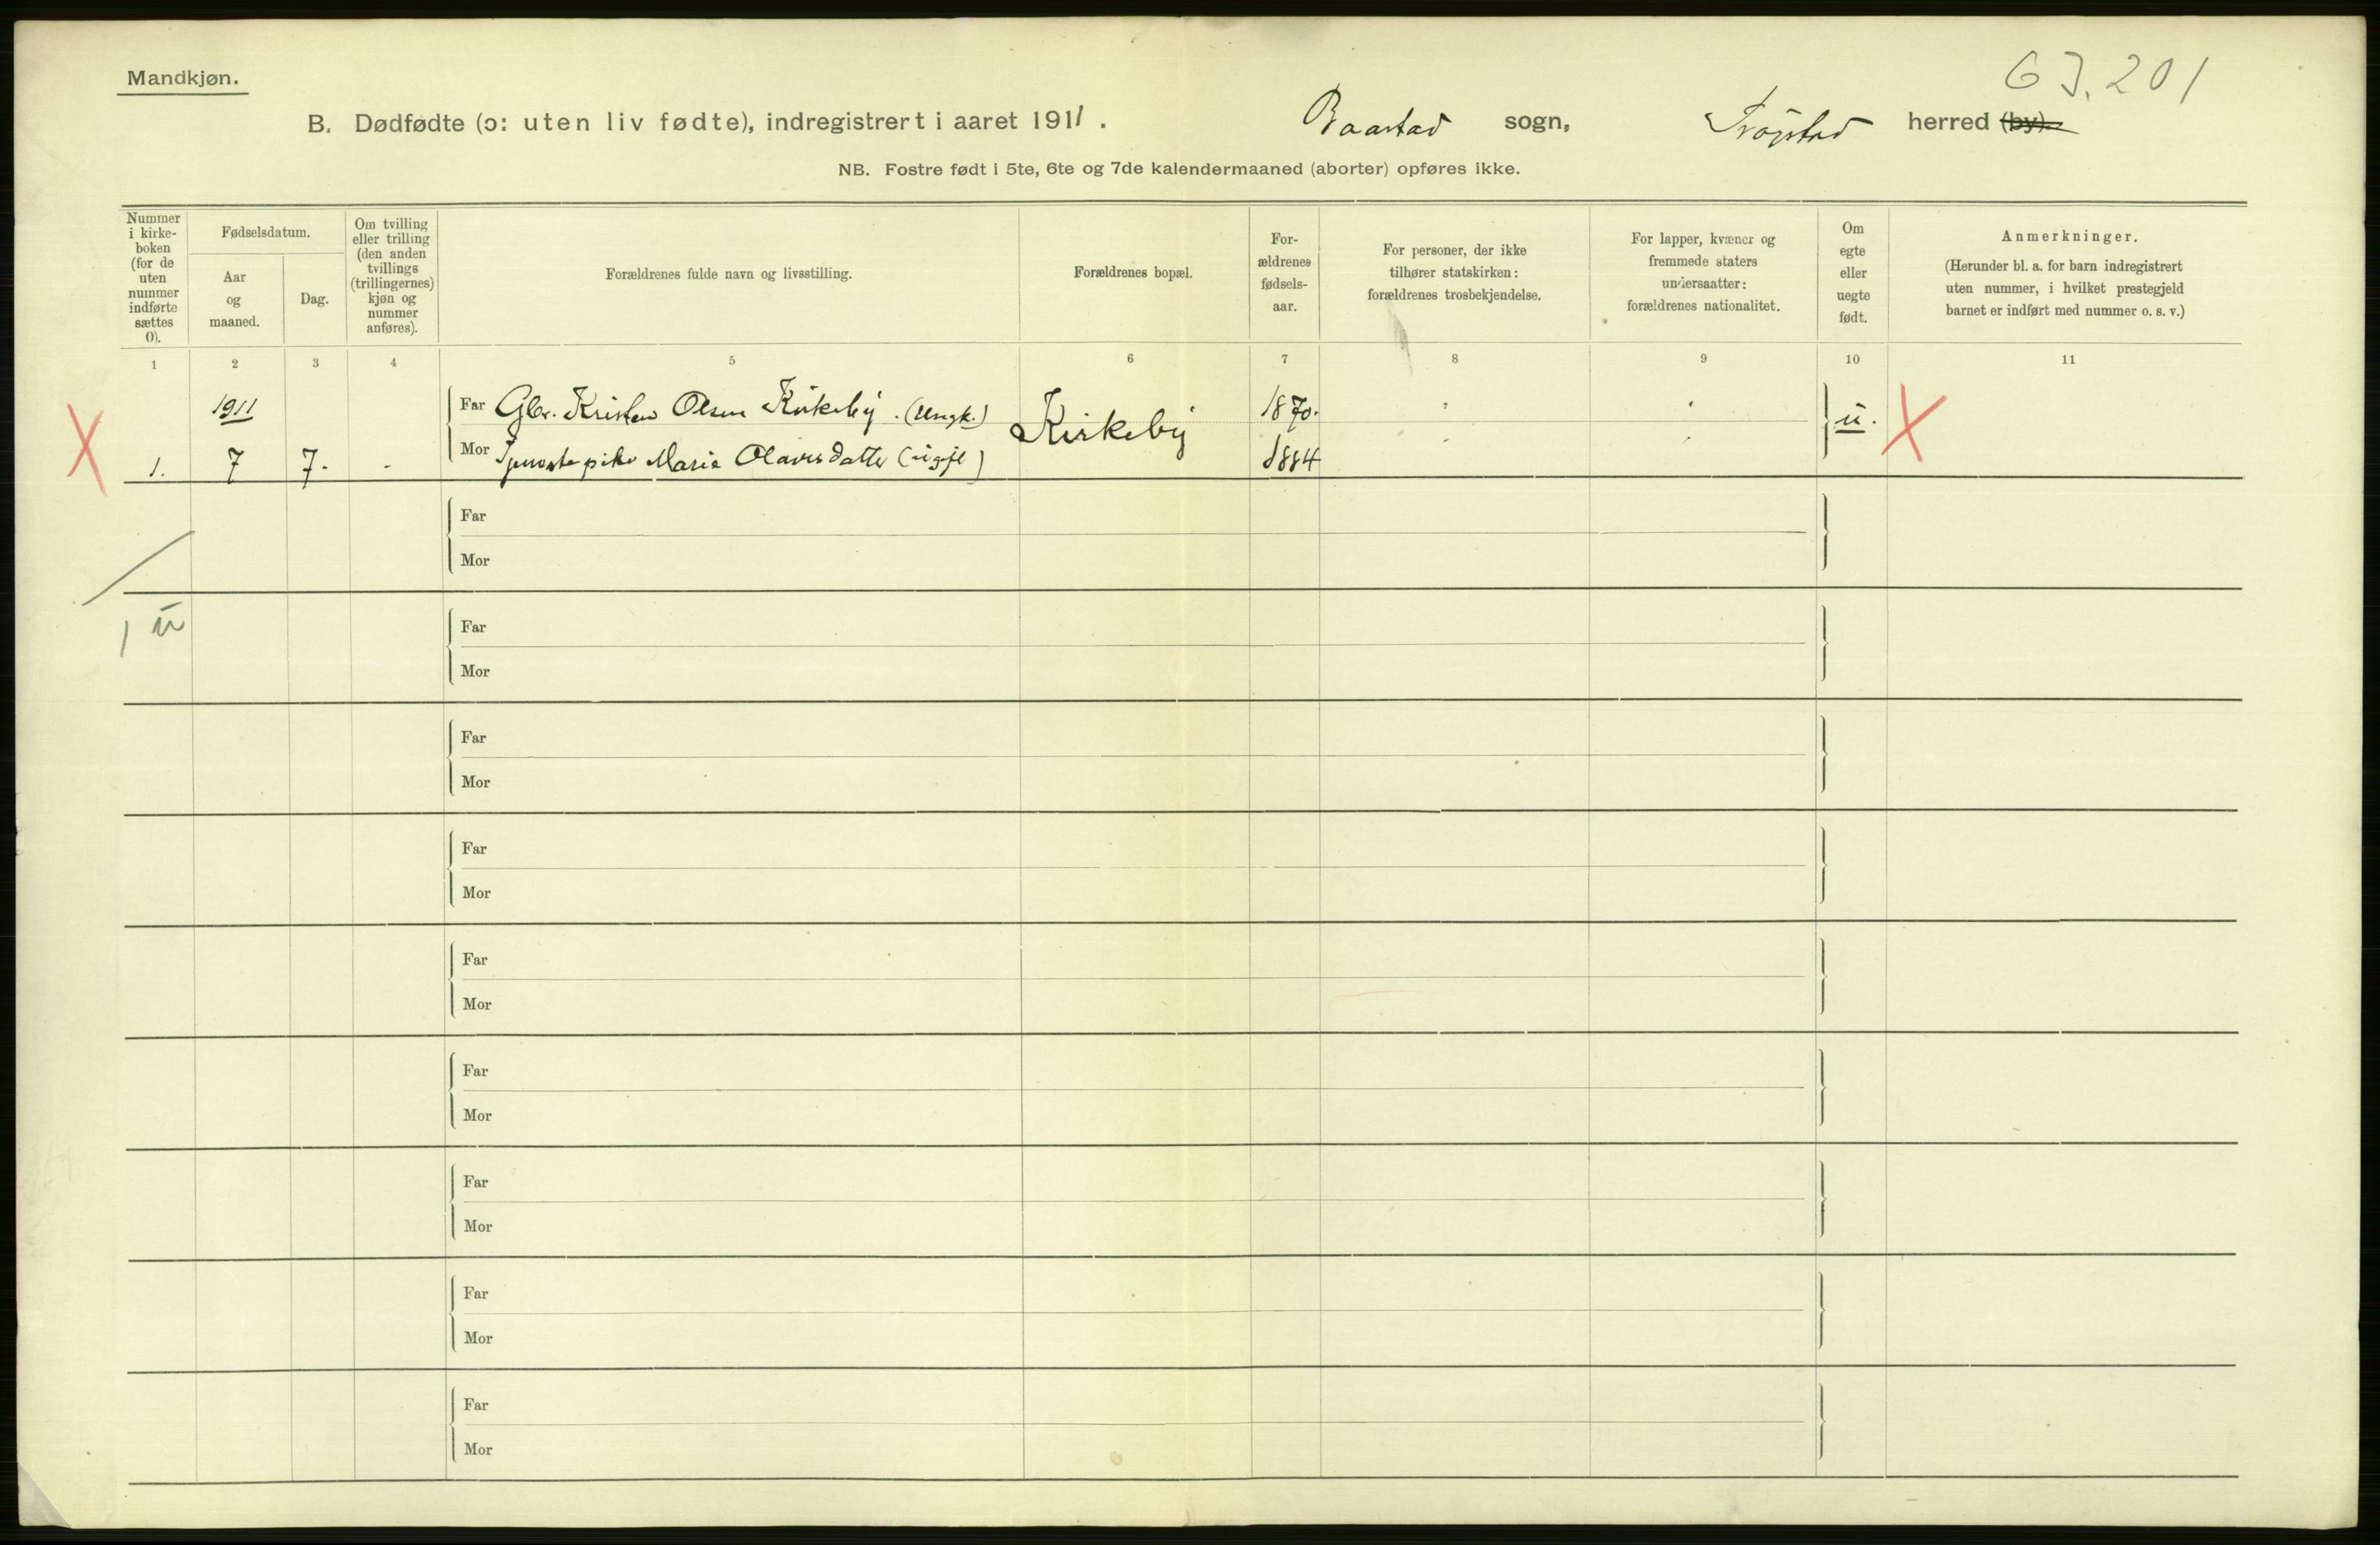 63.201
Mandkjøn.
B. Dødfødte (ɔ: uten liv fødte), indregistrert i aaret 1911. Baastad sogn, Trøgstad herred (by).
NB. Fostre født i 5te, 6te og 7de kalendermaaned (aborter) opføres ikke.
Nummer
i kirke-
boken
(for de
uten
nummer
indførte
sættes
0).
Fødselsdatum.
Aar
og
maaned.
Dag.
Om tvilling
eller trilling
(den anden
tvillings
(trillingernes)
kjøn og
nummer
anføres).
Forældrenes fulde navn og livsstilling.
Forældrenes bopæl.
For-
ældrenes
fødsels-
aar.
For personer, der ikke
tilhører statskirken:
forældrenes trosbekjendelse.
For lapper, kvæner og
fremmede staters
undersaatter:
forældrenes nationalitet.
Om
egte
eller
uegte
født.
Anmerkninger.
(Herunder bl. a. for barn indregistrert
uten nummer, i hvilket prestegjeld
barnet er indført med nummer o. s. v.)
1 2 3 4 5 6 7 8 9 10 11
X 1911 Far Gbr. Kristen Olsen Kirkeby. (Ungk.) Kirkeby 1870. " " u. X
1. 7 7. - Mor Tjenestepike Marie Olavesdatter (ugift) 1884 " "
Far
Mor
1 u
Far
Mor
Far
Mor
Far
Mor
Far
Mor
Far
Mor
Far
Mor
Far
Mor
Far
Mor